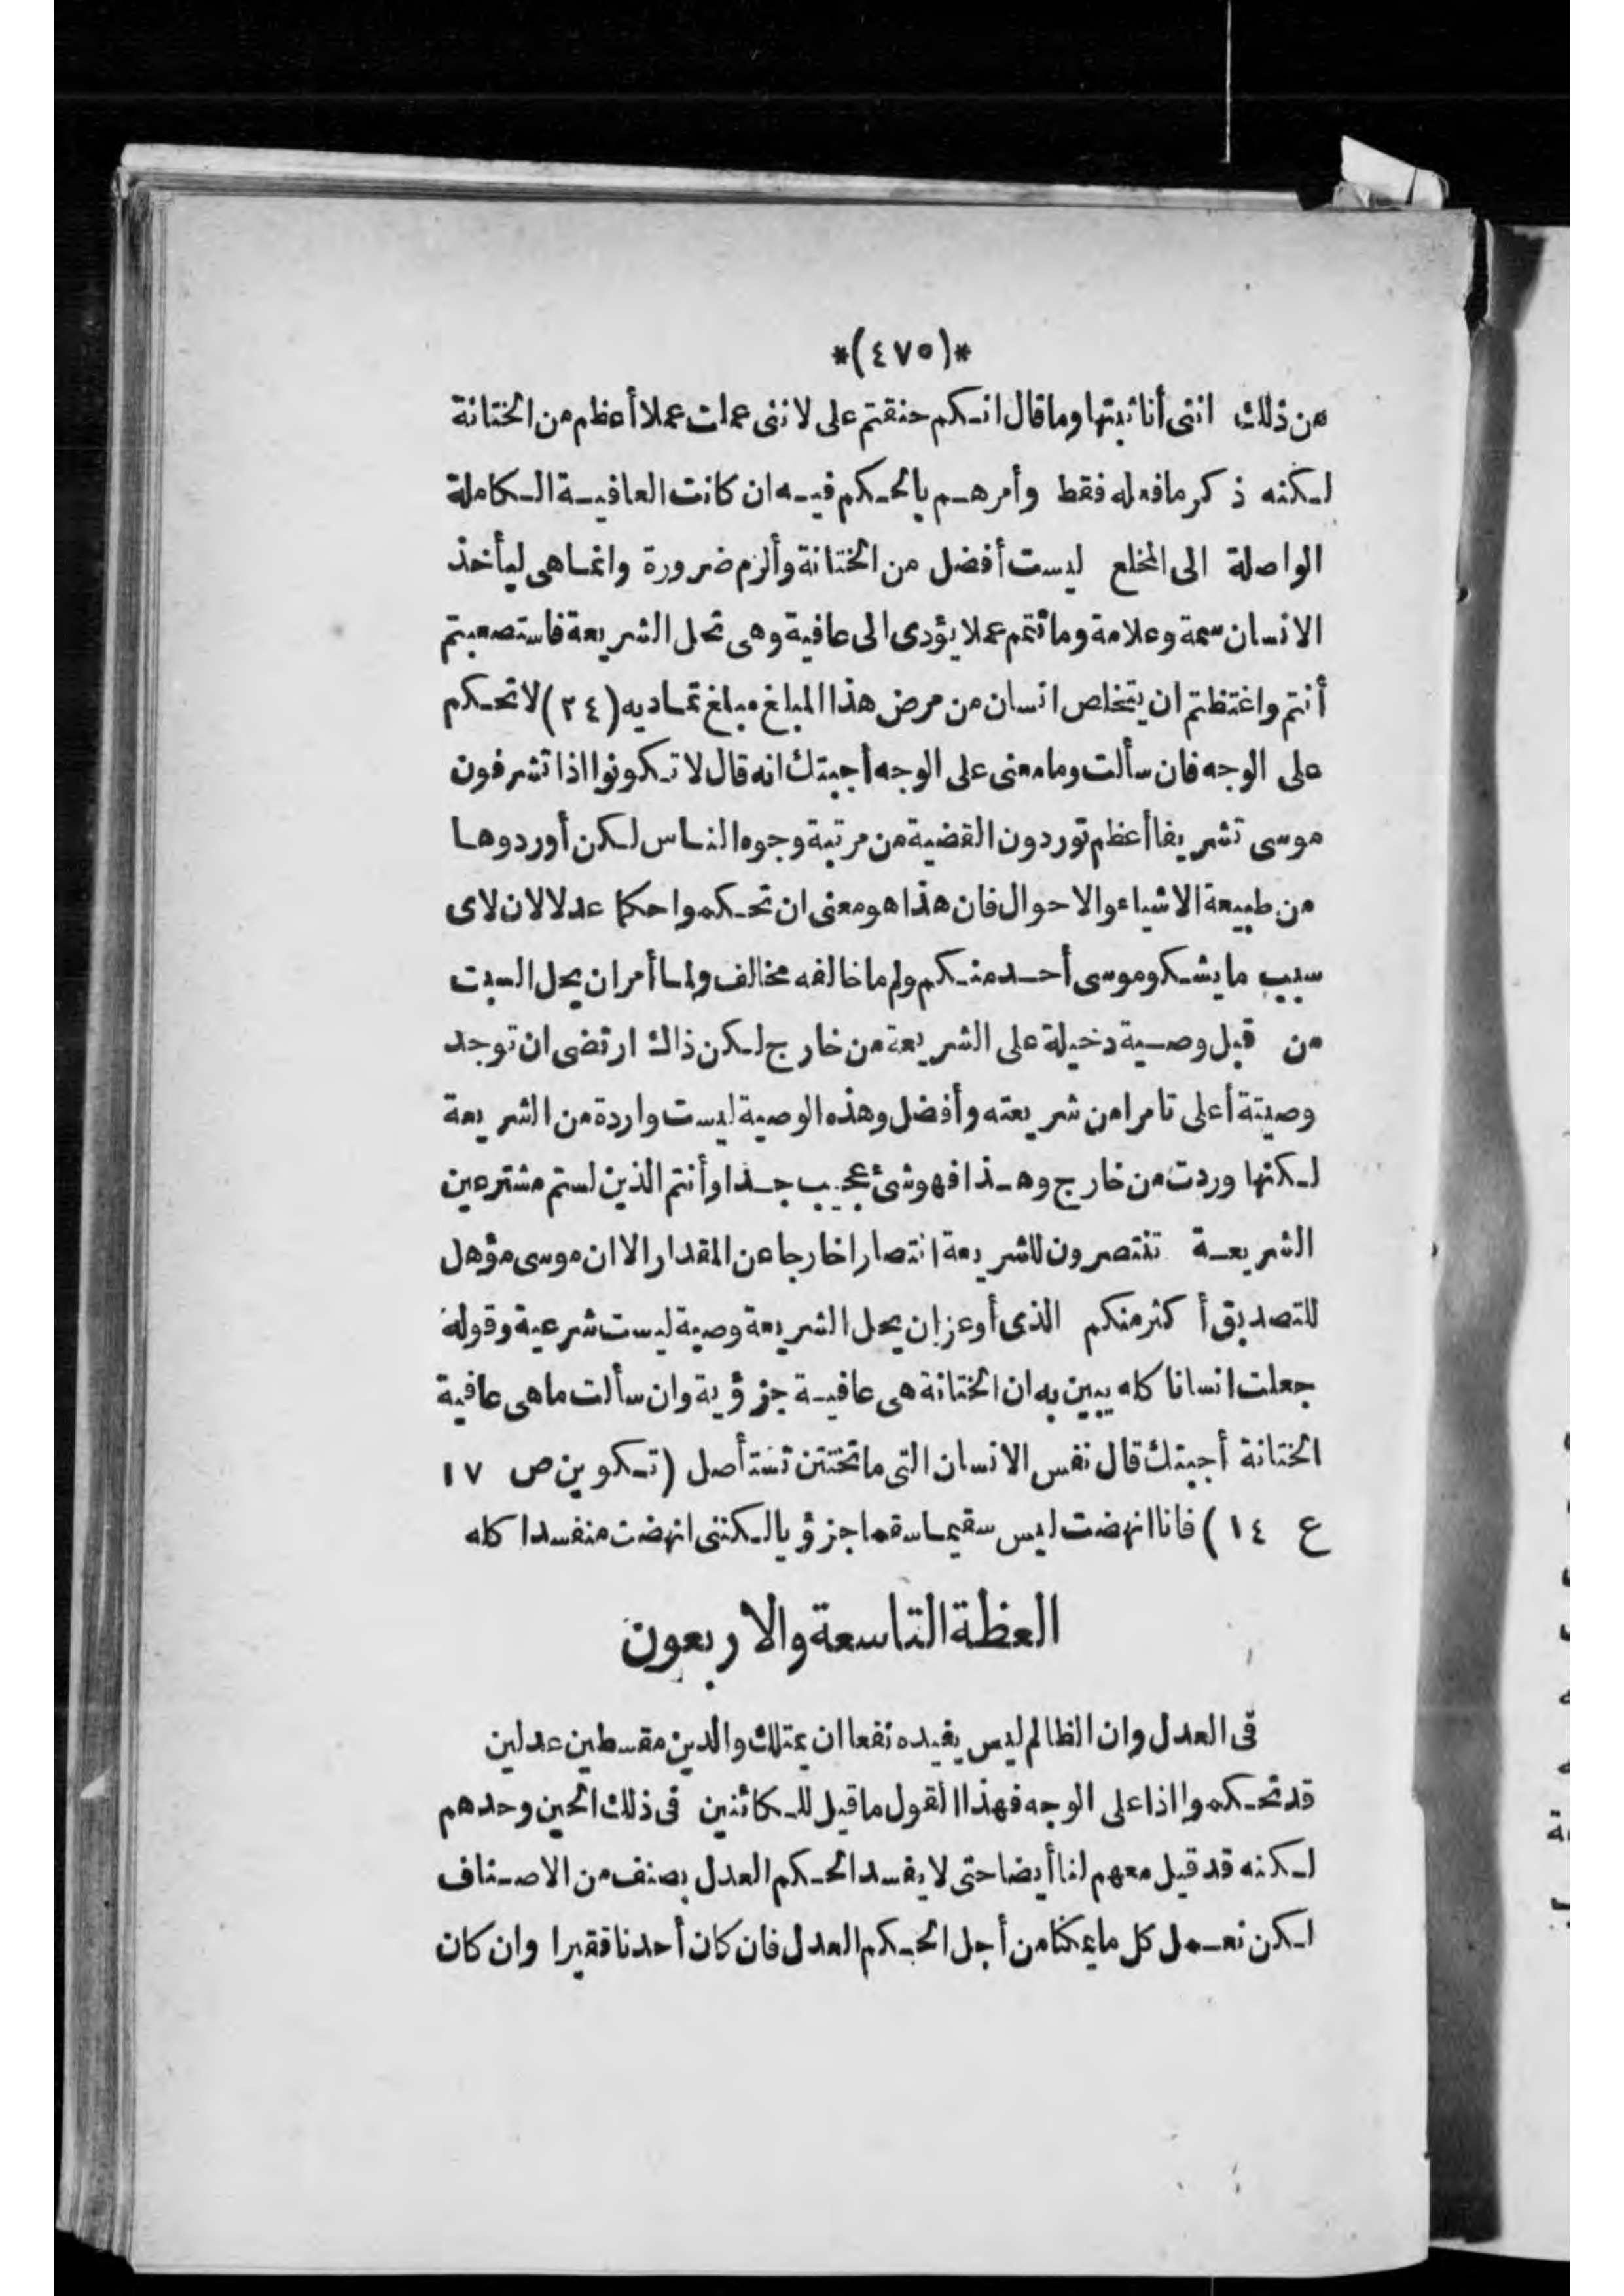 *(٤٧٥)*
من ذلك اننى أنا ثبتها وما قال انكم حنقتم على لاننى عملت عملا أعظم من الختانة
لكنه ذكر ما فعله فقط وأمرهم بالحكم فيه ان كانت العافية الكاملة
الواصلة الى المخلع ليست أفضل من الختانة وألزم ضرورة وانما هى ليأخذ
الانسان سمة وعلامة وما تتمم عملا يؤدى الى عافية وهى تحل الشريعة فاستصعبتم
أنتم واغتظتم ان يتخلص انسان من مرض هذا المبلغ مبلغ تماديه (٢٤) لا تحكم
على الوجه فان سألت وما معنى على الوجه أجبتك انه قال لا تكونوا اذا تشرفون
موسى تشريفا أعظم توردون القضية من مرتبة وجوه الناس لكن أوردوها
من طبيعة الاشياء والاحوال فان هذا هو معنى ان تحكموا حكما عدلا لان لاى
سبب ما يشكو موسى أحد منكم ولم ما خالفه مخالف ولما أمر ان يحل السبت
من قبل وصية دخيلة على الشريعة من خارج لكن ذاك ارتضى ان توجد
وصيتة أعلى تامرا من شريعته وأفضل وهذه الوصية ليست واردة من الشريعة
لكنها وردت من خارج وهذا فهو شئ عجيب جدا وأنتم الذين لستم مشترعين
الشريعة تنتصرون للشريعة انتصارا خارجا عن المقدار الا ان موسى مؤهل
للتصديق أكثر منكم الذى أوعز ان يحل الشريعة وصية ليست شرعية وقوله
جعلت انسانا كله يبين به ان الختانة هى عافية جزؤية وان سألت ما هى عافية
الختانة أجبتك قال نفس الانسان التى ما تختتن تستأصل (تكوين ص ١٧
ع ١٤) فانا انهضت ليس سقيما سقما جزؤيا لكننى انهضت منفسدا كله
العظة التاسعة والاربعون
فى العدل وان الظالم ليس يفيده نفعا ان يمتلك والدين مقسطين عدلين
قد تحكموا اذا على الوجه فهذا القول ما قيل للكائنين فى ذلك الحين وحدهم
لكنه قد قيل معهم لنا أيضا حتى لا يفسد الحكم العدل بصنف من الاصناف
لكن نعمل كل ما يمكنا من أجل الحكم العدل فان كان أحدنا فقيرا وان كان